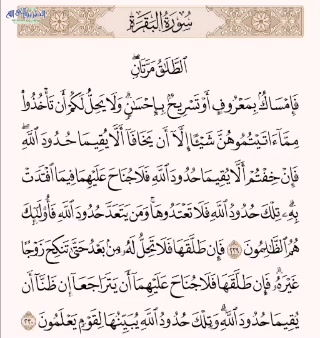 سُورَةُ البَقَرَة
الطَّلَاقُ مَرَّتَانِ ۖ
فَإِمْسَاكٌ بِمَعْرُوفٍ أَوْ تَسْرِيحٌ بِإِحْسَانٍ ۗ وَلَا يَحِلُّ لَكُمْ أَن تَأْخُذُوا
مِمَّا آتَيْتُمُوهُنَّ شَيْئًا إِلَّا أَن يَخَافَا أَلَّا يُقِيمَا حُدُودَ اللَّهِ ۖ
فَإِنْ خِفْتُمْ أَلَّا يُقِيمَا حُدُودَ اللَّهِ فَلَا جُنَاحَ عَلَيْهِمَا فِيمَا افْتَدَتْ
بِهِ ۗ تِلْكَ حُدُودُ اللَّهِ فَلَا تَعْتَدُوهَا ۚ وَمَن يَتَعَدَّ حُدُودَ اللَّهِ فَأُولَٰئِكَ
هُمُ الظَّالِمُونَ ٢٢٩ فَإِن طَلَّقَهَا فَلَا تَحِلُّ لَهُ مِن بَعْدُ حَتَّىٰ تَنكِحَ زَوْجًا
غَيْرَهُ ۗ فَإِن طَلَّقَهَا فَلَا جُنَاحَ عَلَيْهِمَا أَن يَتَرَاجَعَا إِن ظَنَّا أَن
يُقِيمَا حُدُودَ اللَّهِ ۗ وَتِلْكَ حُدُودُ اللَّهِ يُبَيِّنُهَا لِقَوْمٍ يَعْلَمُونَ ٢٣٠